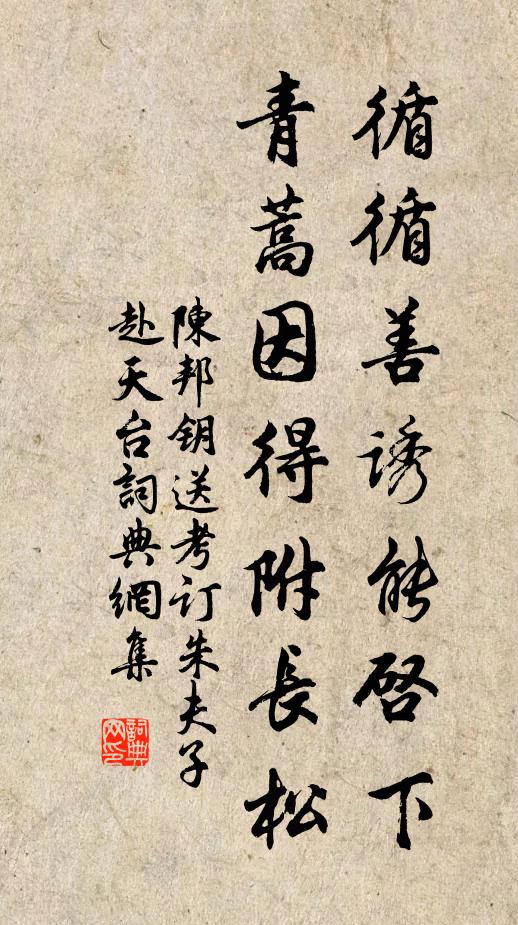 循循善誘能啓下
青蒿因得附長松
陳邦钥送考订朱夫子
赴天台詞典網集
詞典
网印